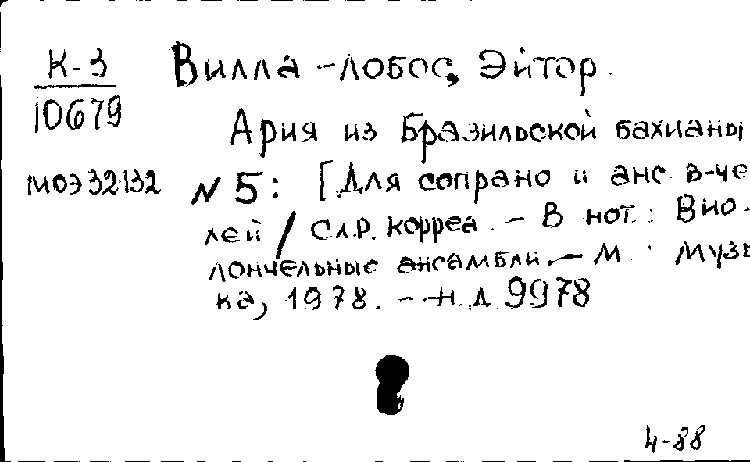 К-3
10679
Вилла-Лобос, Эйтор.
Ария из Бразильской бахианы
МОЭ32132 № 5: [Для сопрано и анс. в-че
лей / Сл. Р. Корреа. - В нот.: Вио-
лончельные ансамбли. - М.: Музы
ка, 1978. - Н. д. 9978
4-88